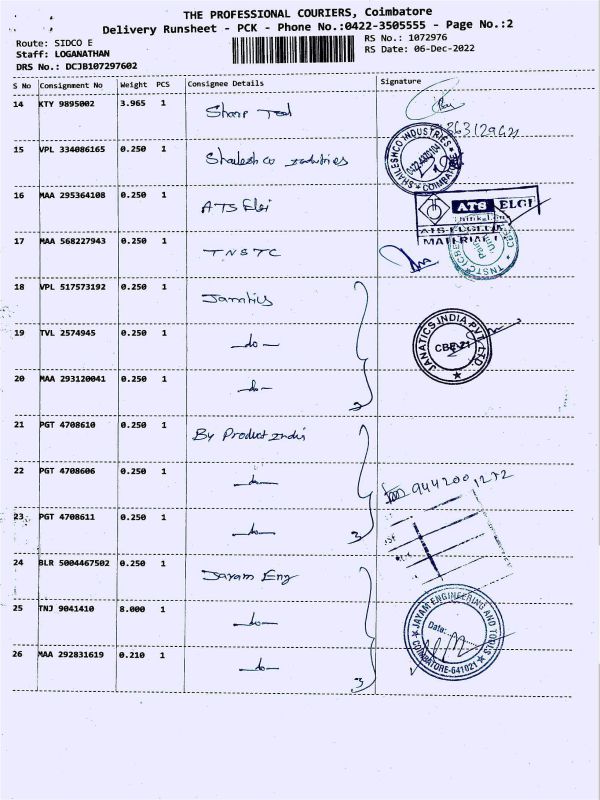 THE PROFESSIONAL COURIERS, Coimbatore
Delivery Runsheet - PCK - Phone No.:0422-3505555 - Page No.:2
Route: SIDCO E
RS No.: 1072976
Staff: LOGANATHAN
RS Date: 06-Dec-2022
DRS No.: DCJB107297602
S No Consignment No Weight PCS Consignee Details Signature
14 KTY 9895002 3.965 1 Sharp Tool
15 VPL 334086165 0.250 1 Shailesh co industries
SHAILESHCO INDUSTRIES
COIMBATORE
16 MAA 295364108 0.250 1 ATS Elgi
ATS ELGI
17 MAA 568227943 0.250 1 TNSTC
MATERIAL
TNSTC (CBE)
18 VPL 517573192 0.250 1
19 TVL 2574945 0.250 1 -do-
JANATICS INDIA PVT. LTD.
CBE-21
20 MAA 293120041 0.250 1 -do-
2
21 PGT 4708610 0.250 1 By Product India
22 PGT 4708606 0.250 1 -do-
944200,272
23 PGT 4708611 0.250 1 -do-
3
24 BLR 5004467502 0.250 1 Jayam Eng
25 TNJ 9041410 8.000 1 -do-
JAYAM ENGINEERING AND TOOLS
Date:
COIMBATORE-641021
26 MAA 292831619 0.210 1 -do-
3